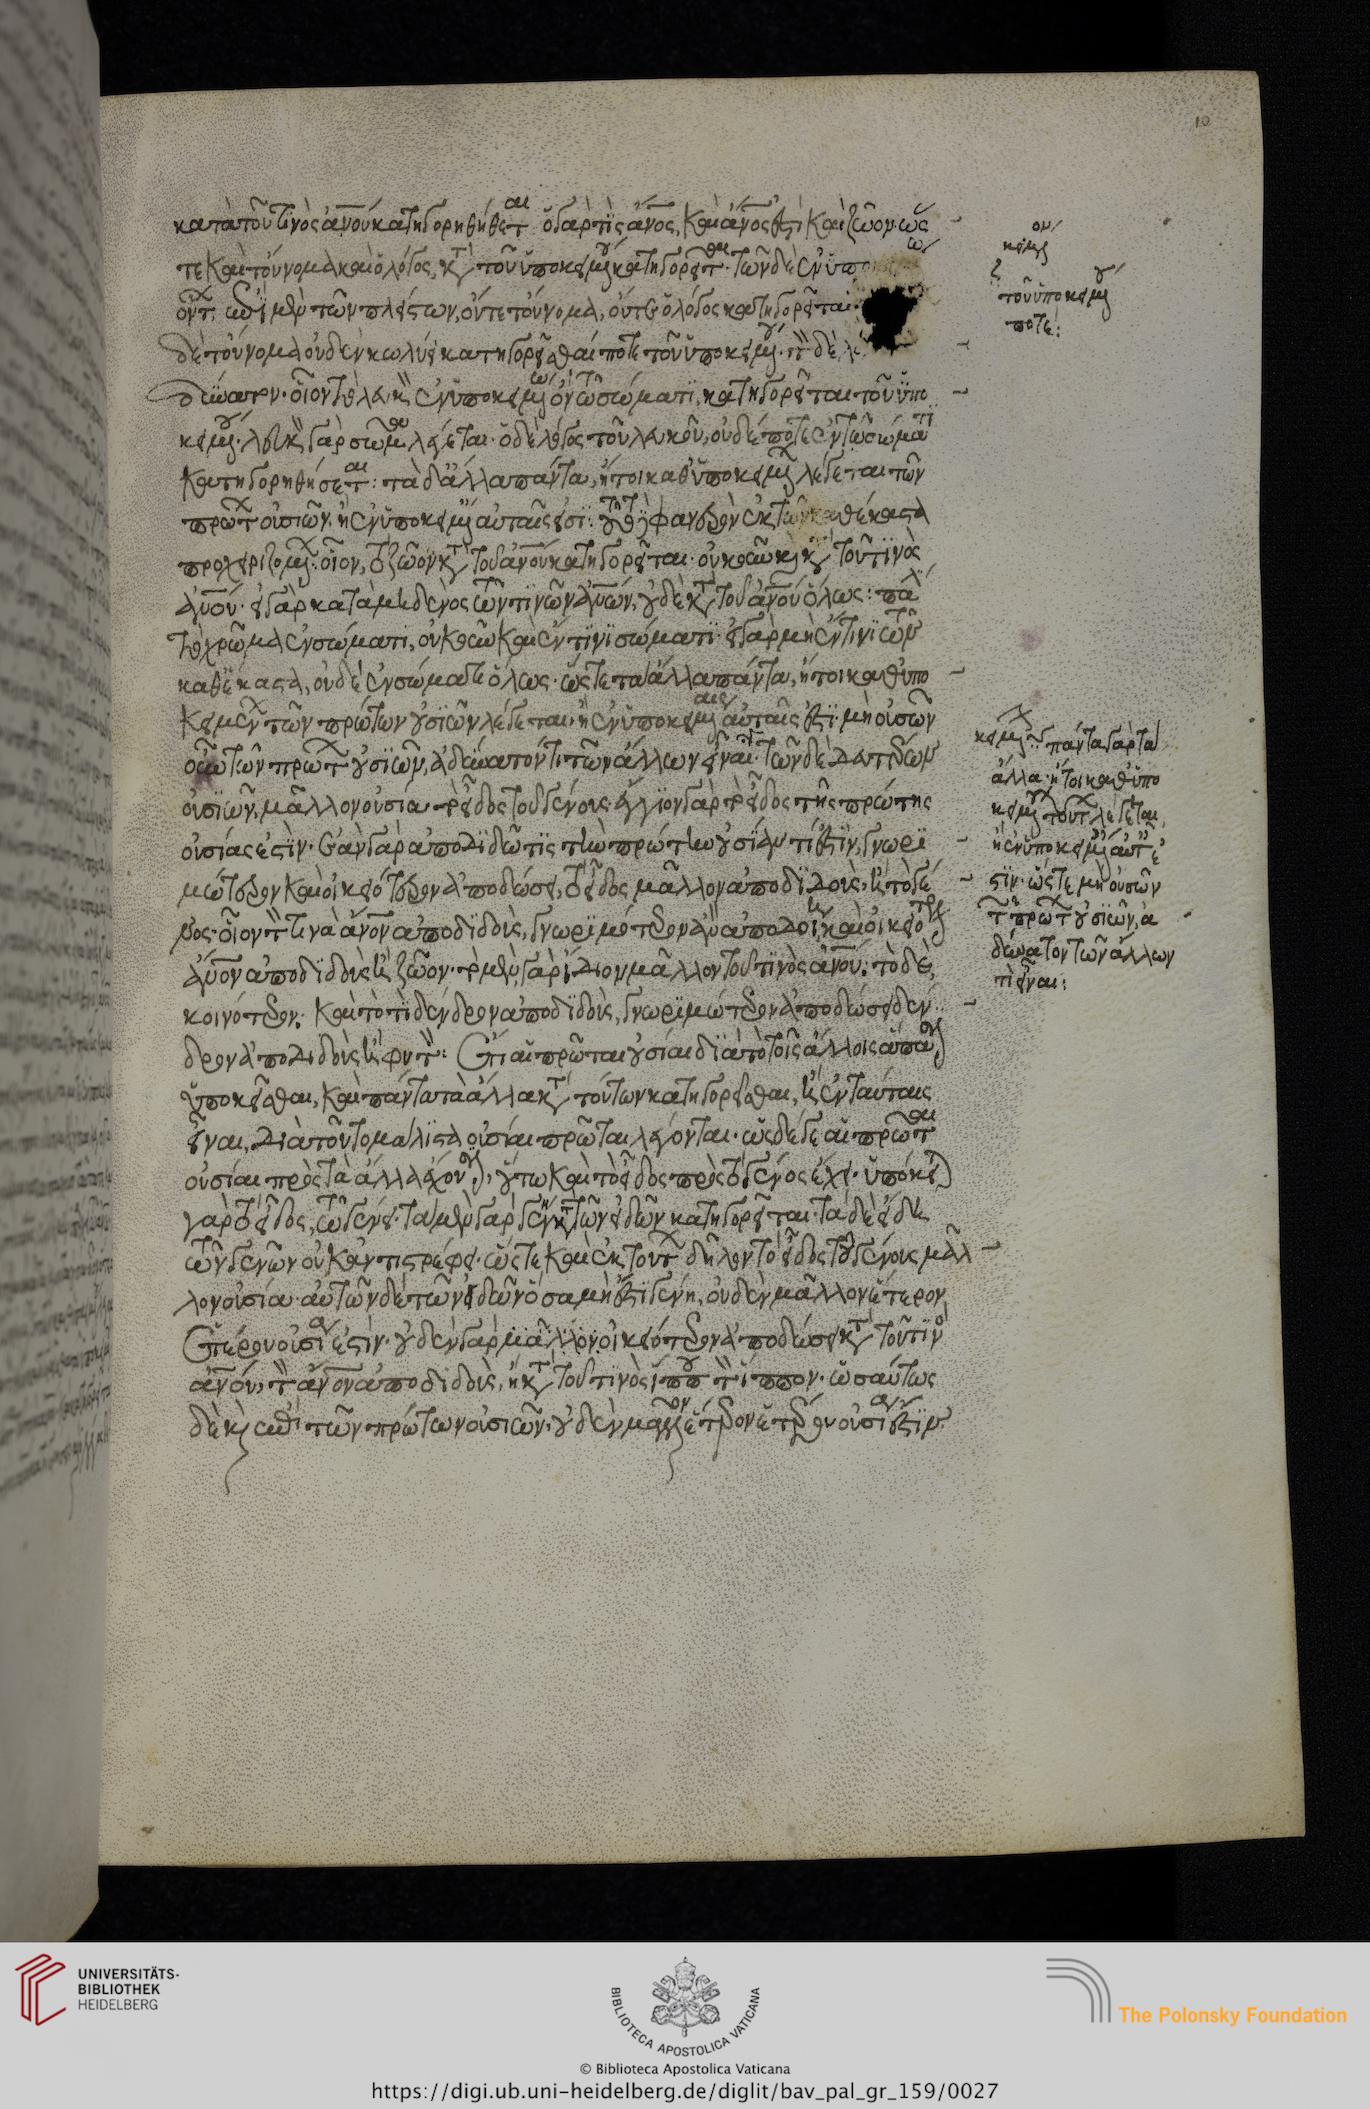 10
κατὰ τοῦ τινὸς ἀνου κατηγορηθήσεται· ὁ γάρ τὶς ἄνος, καὶ ἄνος ἐστὶ καὶ ζῶον· ὥς
τε καὶ τοὔνομα καὶ ὁ λόγος, κατὰ τοῦ ὑποκειμένου κατηγορεῖται· τῶν δὲ ἐν ὑπο
ὄντων, ἐπὶ μὲν τῶν πλείστων, οὔτε τοὔνομα, οὔτε ὁ λόγος κατηγορεῖται
δὲ τοὔνομα οὐδὲν κωλύει κατηγορεῖσθαί ποτε τοῦ ὑποκειμένου· τὸν δὲ λό
ἀδύνατον· οἷον τὸ λευκὸν ἐν ὑποκειμένω ὂν τῶ σώματι, κατηγορεῖται τοῦ ὑπο
κειμένου· λευκὸν γὰρ σῶμα λέγεται· ὁ δὲ λόγος τοῦ λευκοῦ, οὐδέποτε ἐν τῶ σώματι
κατηγορηθήσεται: τὰ δ' ἄλλα πάντα, ἤτοι καθ' ὑποκειμένων λέγεται τῶν
πρώτων οὐσιῶν, ἢ ἐν ὑποκειμέναις αὐταῖς ἐστί: τοῦτο δὲ φανερὸν ἐκ τῶν καθέκαστα
προχειριζομένων· οἷον, τὸ ζῶον κατὰ τοῦ ἀνου κατηγορεῖται· οὐκοῦν καὶ κατὰ τοῦ τινὸς
ἀνου· εἰ γὰρ κατὰ μηδενὸς τῶν τινῶν ἀνων, οὐδὲ κατὰ τοῦ ἀνου ὅλως: πάλιν
τὸ χρῶμα ἐν σώματι, οὐκοῦν καὶ ἐν τινὶ σώματι· εἰ γὰρ μὴ ἐν τινὶ τῶν
καθέκαστα, οὐδὲ ἐν σώματι ὅλως· ὥστε τὰ ἄλλα πάντα, ἤτοι καθ' ὑπο
κειμένων τῶν πρώτων οὐσιῶν λέγεται, ἢ ἐν ὑποκειμέναις αὐταῖς ἐστί· μὴ οὐσῶν
οὖν τῶν πρώτων οὐσιῶν, ἀδύνατόν τι τῶν ἄλλων εἶναι· τῶν δὲ δευτέρων
οὐσιῶν, μᾶλλον οὐσία τὸ εἶδος τοῦ γένους· ἔγγιον γὰρ τὸ εἶδος τῆς πρώτης
οὐσίας ἐστίν· ἐὰν γὰρ ἀποδιδῶ τὶς τὴν πρώτην οὐσίαν τί ἐστιν, γνωρι
μώτερον καὶ οἰκειότερον ἀποδώσει, τὸ εἶδος μᾶλλον ἀποδιδοὺς, ἢ τὸ γέ
νος· οἷον τὸν τινὰ ἄνον ἀποδιδοὺς, γνωριμώτερον ἂν ἀποδοίη καὶ οἰκειότερον
ἄνον ἀποδιδοὺς ἢ ζῶον· τὸ μὲν γὰρ ἴδιον μᾶλλον τοῦ τινὸς ἀνου: τὸ δὲ,
κοινότερον· καὶ τὸ τὶ δένδρον ἀποδιδοὺς, γνωριμώτερον ἀποδώσει δέν
δρον ἀποδιδοὺς ἢ φυτόν: Ἔτι αἱ πρῶται οὐσίαι διὰ τὸ τοῖς ἄλλοις ἅπασιν
ὑποκεῖσθαι, καὶ πάντα τὰ ἄλλα κατὰ τούτων κατηγορεῖσθαι, ἢ ἐν ταύταις
εἶναι, διὰ τοῦτο μάλιστα οὐσίαι πρῶται λέγονται· ὡς δέ γε αἱ πρῶται
οὐσίαι πρὸς τὰ ἄλλα ἔχουσιν, οὕτω καὶ τὸ εἶδος πρὸς τὸ γένος ἔχει· ὑπόκειται
γὰρ τὸ εἶδος, τῶ γένει· τὰ μὲν γὰρ γένη κατὰ τῶν εἰδῶν κατηγορεῖται· τὰ δὲ εἴδη
τῶν γενῶν οὐκ ἀντιστρέφει· ὥστε καὶ ἐκ τούτων δῆλον τὸ εἶδος τοῦ γένους μᾶλ
λον οὐσία· αὐτῶν δὲ τῶν εἰδῶν ὅσα μή ἐστι γένη, οὐδὲν μᾶλλον ἕτερον
ἑτέρου οὐσία ἐστίν· οὐδὲν γὰρ μᾶλλον οἰκειότερον ἀποδώσει κατὰ τοῦ τινὸς
ἀνου, τὸν ἄνον ἀποδιδοὺς, ἢ κατὰ τοῦ τινὸς ἵππου τὸν ἵππον· ὡσαύτως
δὲ καὶ ἐπὶ τῶν πρώτων οὐσιῶν, οὐδὲν μᾶλλον ἕτερον ἑτέρου οὐσία ἐστίν
κειμένω
τοῦ ὑποκειμένου
ποτέ:
κειμένων: πάντα γὰρ τὰ
ἄλλα ἤτοι καθ' ὑπο
κειμένων τούτων λέγεται,
ἢ ἐν ὑποκειμέναις αὐταῖς ἐ
στίν· ὥστε μὴ οὐσῶν
τῶν πρώτων οὐσιῶν, ἀ
δύνατον τῶν ἄλλων
τὶ εἶναι:
UNIVERSITÄTS-
BIBLIOTHEK
HEIDELBERG
BIBLIOTECA APOSTOLICA VATICANA
The Polonsky Foundation
© Biblioteca Apostolica Vaticana
https://digi.ub.uni-heidelberg.de/diglit/bav_pal_gr_159/0027